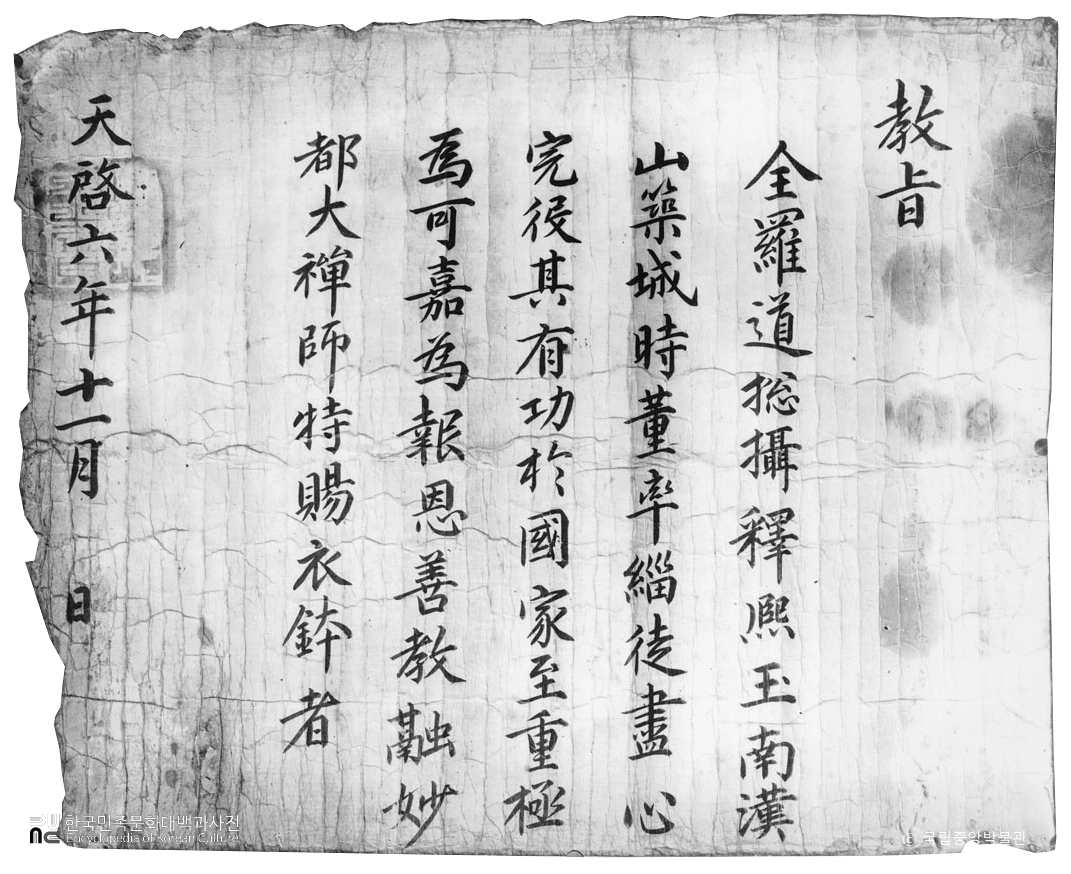 教旨
全羅道捴攝釋熈玉南漢
山築城時董率緇徒盡心
完役其有功於國家至重極
爲可嘉為報恩善教融妙
都大禪師特賜衣鉢者
天啓六年十一月 日
한국민족문화대백과사전
Encyclopedia of Korean Culture
© 국립중앙박물관